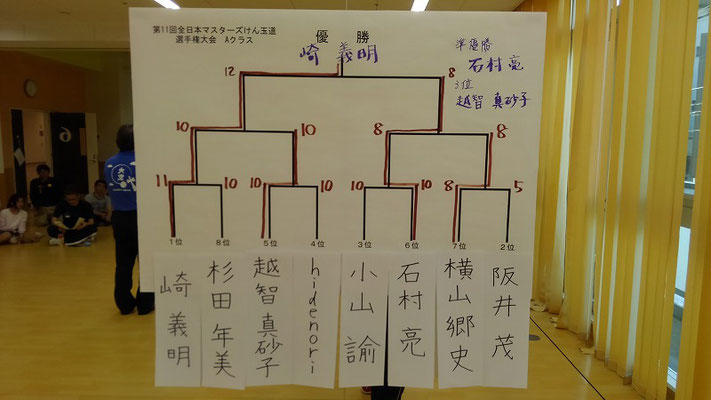 第11回全日本マスターズけん玉道
選手権大会 Aクラス
優 勝
崎 義明
準優勝
石村 亮
3位
越智 真砂子
12 8
10 10 8 8
11 10 10 10 10 10 8 5
1位 8位 5位 4位 3位 6位 7位 2位
崎 義明
杉田 年美
越智 真砂子
hidenori
小山 諭
石村 亮
横山 郷史
阪井 茂